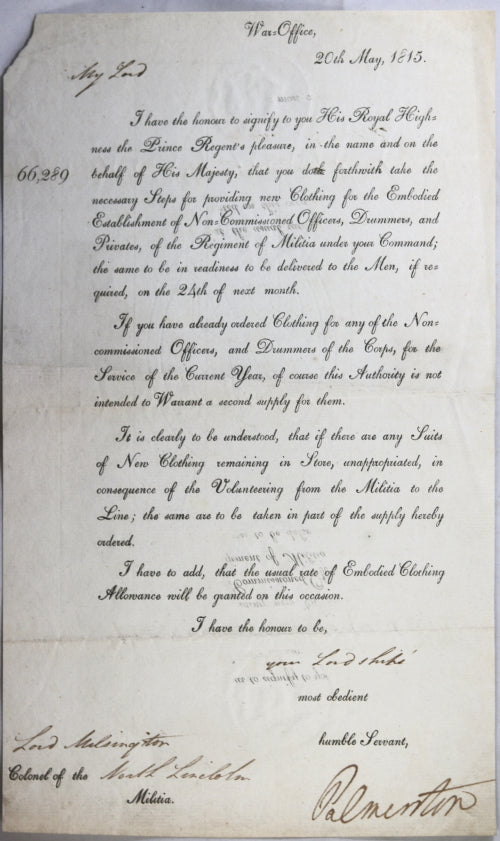 War=Office,
20th May, 1815.
My Lord
I have the honour to signify to you His Royal High=
ness the Prince Regent's pleasure, in the name and on the
66,289
behalf of His Majesty, that you do forthwith take the
necessary Steps for providing new Clothing for the Embodied
Establishment of Non=Commissioned Officers, Drummers, and
Privates, of the Regiment of Militia under your Command;
the same to be in readiness to be delivered to the Men, if re=
quired, on the 24th of next month.
If you have already ordered Clothing for any of the Non=
commissioned Officers, and Drummers of the Corps, for the
Service of the Current Year, of course this Authority is not
intended to Warrant a second supply for them.
It is clearly to be understood, that if there are any Suits
of New Clothing remaining in Store, unappropriated, in
consequence of the Volunteering from the Militia to the
Line; the same are to be taken in part of the supply hereby
ordered.
I have to add, that the usual rate of Embodied Clothing
Allowance will be granted on this occasion.
I have the honour to be,
your Lordship's
most obedient
humble Servant,
Lord Milsington
Colonel of the North Lincoln
Militia.
Palmerston